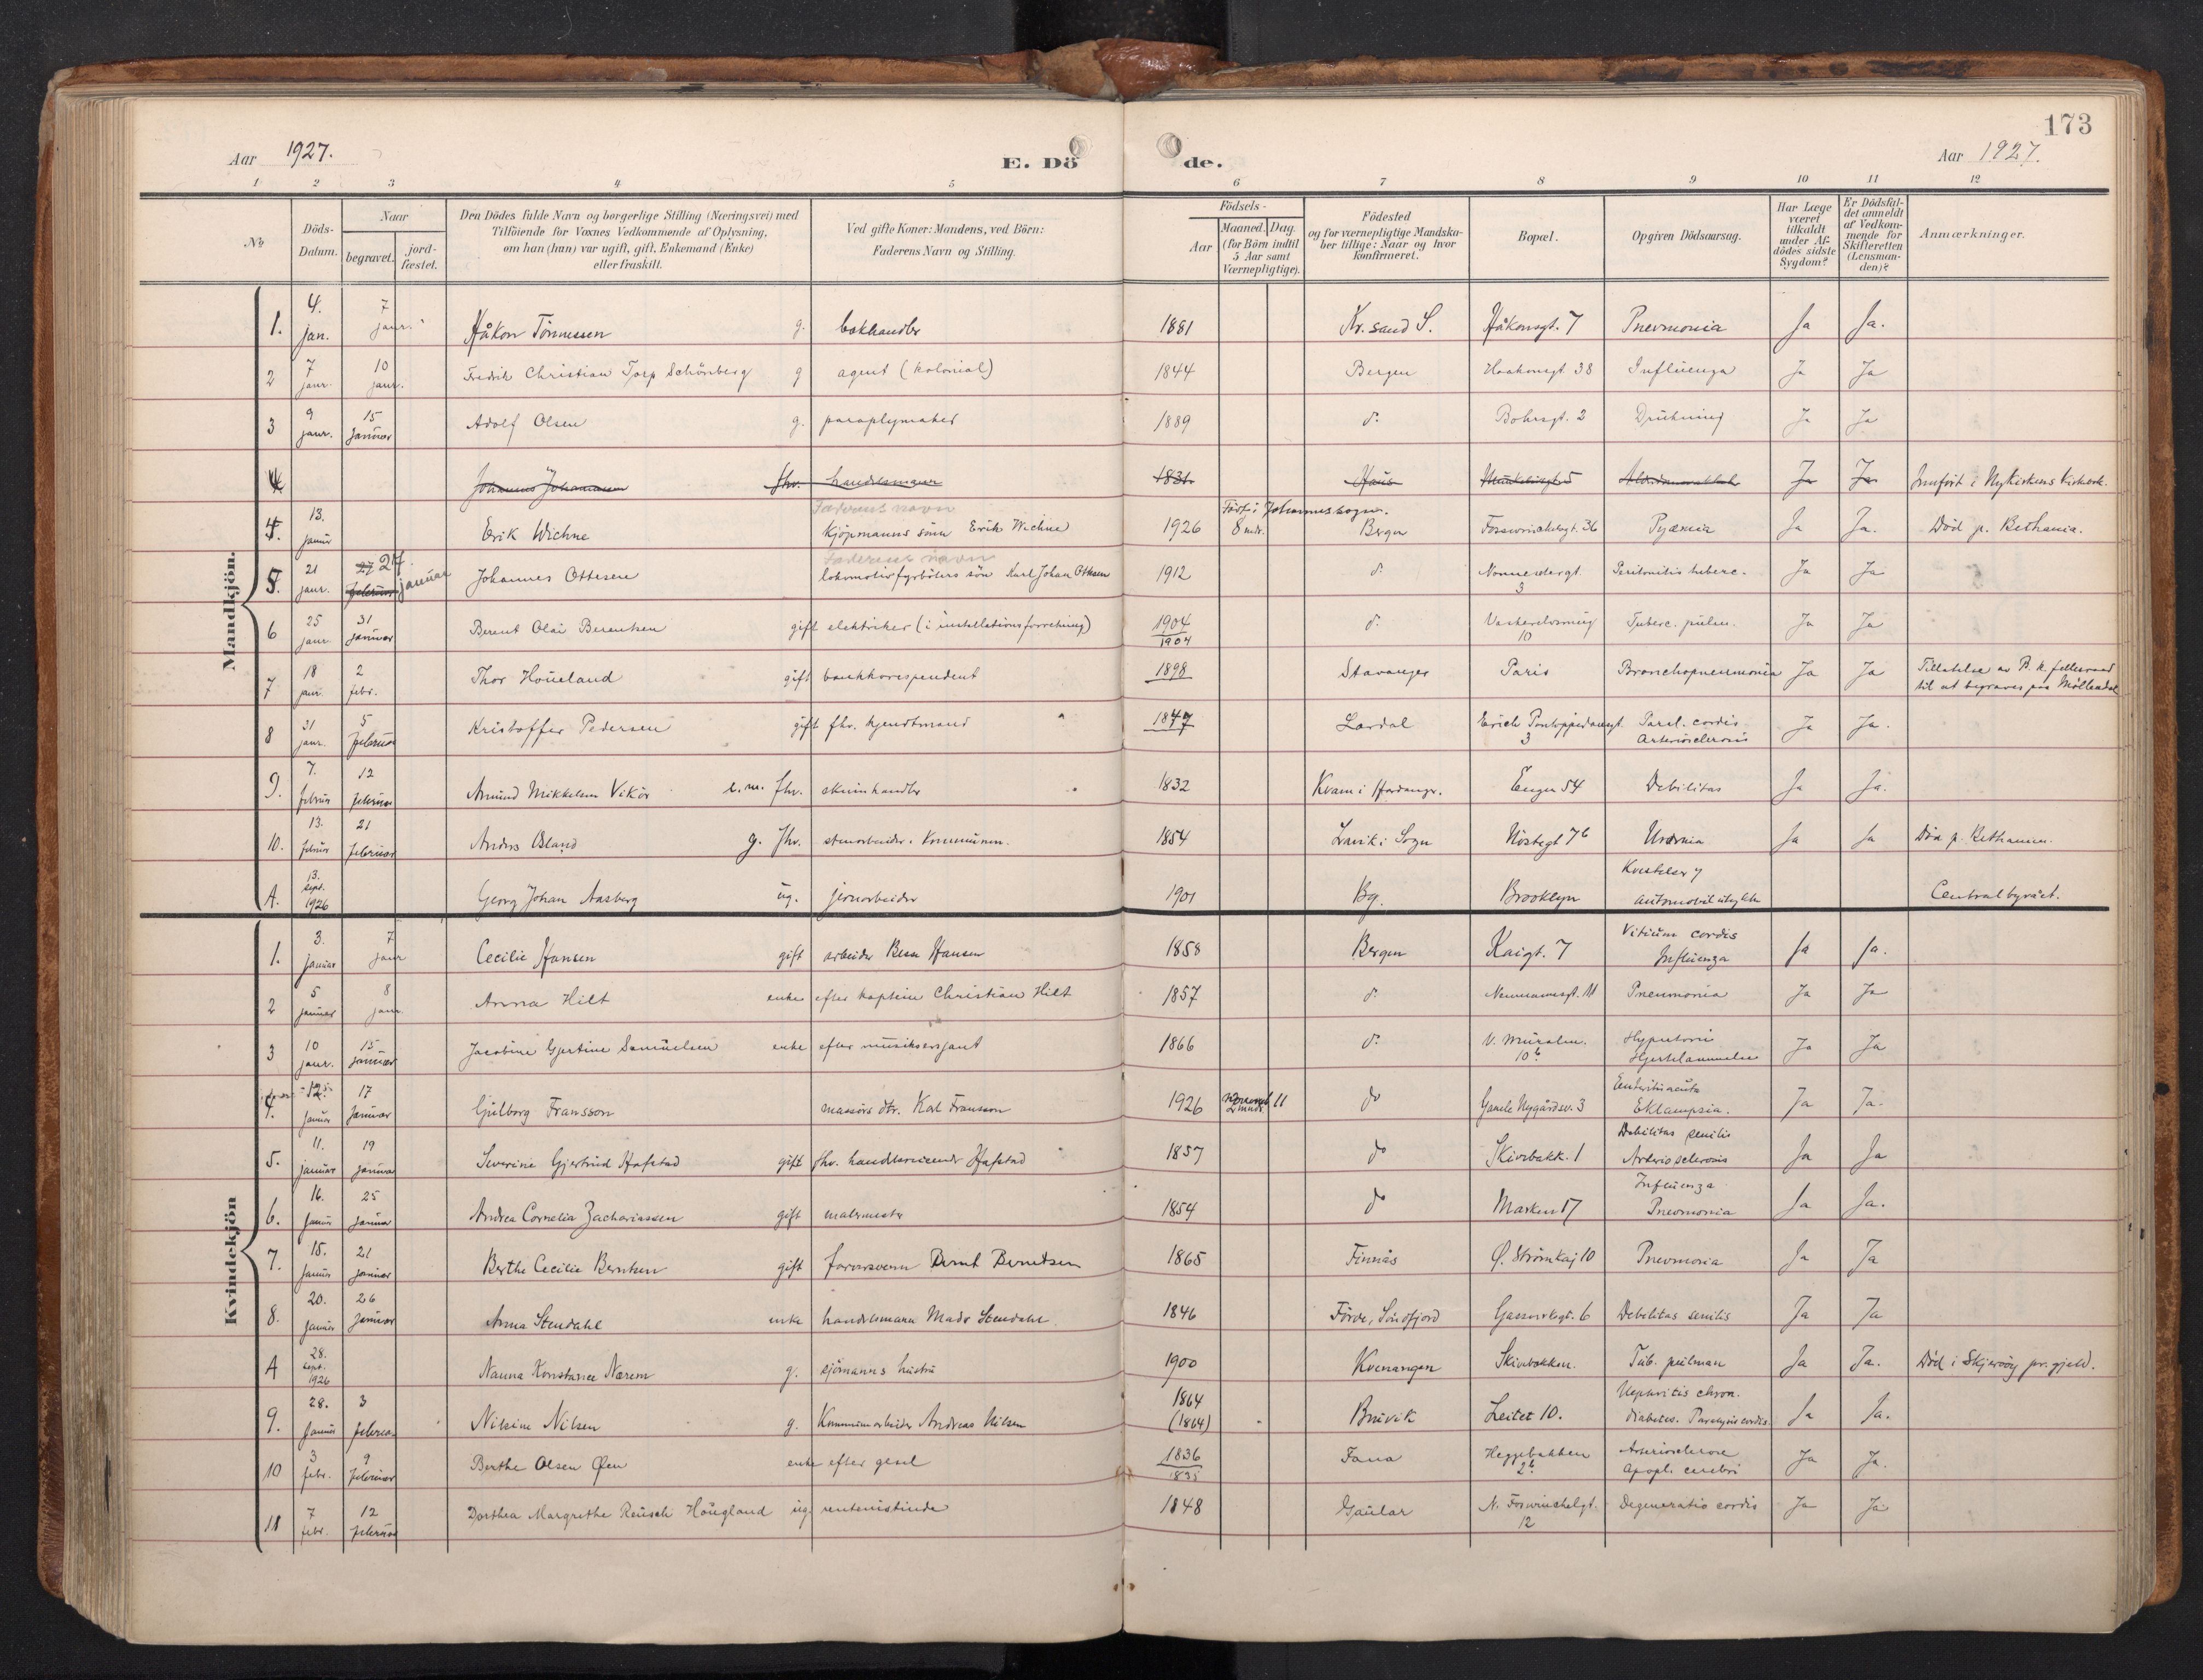 173
Aar 1927. E. Dö de. Aar 1927.
1 2 3 4 5 6 7 8 9 10 11 12
No
Döds-Datum.
Naar begravet. jord-fæstet.
Den Dödes fulde Navn og borgerlige Stilling (Næringsvei) med Tilföiende for Voxnes Vedkommende af Oplysning, om han (hun) var ugift, gift, Enkemand (Enke) eller fraskilt.
Ved gifte Koner: Mandens, ved Börn: Faderens Navn og Stilling.
Födsels- Aar Maaned. Dag. (for Börn indtil 5 Aar samt Værnepligtige).
Födested og for værnepligtige Mandskaber tillige: Naar og hvor konfirmeret.
Bopæl.
Opgiven Dödsaarsag.
Har Læge været tilkaldt under Afdödes sidste Sygdom?
Er Dödsfaldet anmeldt af Vedkommende for Skifteretten (Lensmanden)?
Anmærkninger.
Mandkjön.
1. 4. jan. 7 janr. Håkon Tönnessen g. bokhandler 1881 Kr.sand S. Håkonsgt. 7 Pnevmonia Ja Ja.
2 7 janr. 10 janr. Fredrik Christian Torp Schönberg g agent (kolonial) 1844 Bergen Haakonsgt 38 Influenza Ja Ja
3 9 janr. 15 januar Adolf Olsen g. paraplymaker 1889 do Bohrsgt. 2 Drukning Ja Ja
4 Johannes Johannessen fhv. handelsmann 1831 Haus Ja Ja Innført i Nykirkens kirkebok.
Faderens navn
4. 13. januar Erik Wichne kjöpmanns sönn Erik Wichne 1926 8 mdr. Födt i Johannes sogn. Bergen Fosswinckelsgt. 36 Pyæmia Ja Ja. Död p. Bethania.
Faderens navn
5. 21 janr. 27 februar 27. januar Johannes Ottesen lokomotivfyrböters sön Karl Johan Ottesen 1912 do Nonnestergt. 3 Peritonitis tuberc. Ja Ja
6 25 janr. 31 januar Berent Olai Berentsen gift elektriker (i installationsforretning) 1904 1904 do 10 Tuberc. pulm. Ja Ja
7 18 janr. 2 febr. Thor Houeland gift bankkorrespondent 1898 Stavanger Paris Bronchopneumonia Ja Ja Tillatelse av B. k. fellesraad til at begraves paa Möllendal
8 31 janr. 5 februar Kristoffer Pedersen gift fhv. 1847 Lardal Erich Pontoppidansgt. 3 Paral. cordis Arteriosclerosis Ja Ja.
9. 7. februar 12 februar Amund Mikkelsen Vikör e.m. fhv. skinnhandler 1832 Kvam i Hardanger. Engen 54 Debilitas Ja Ja.
10. 13. februar 21 februar Anders Ösland g. fhv. stenarbeider i Kommunen. 1854 Lavik i Sogn Nöstegt 76 Uræmia Ja Ja Död p. Bethania.
A. 13. Sept. 1926 Georg Johan Aasberg ug. jernarbeider 1901 Bg. Brooklyn Kvestelser v automobilulykke Centralbyrået.
Kvindekjön
1. 3. januar 7 janr Cecilie Hansen gift arbeider Hansen 1858 Bergen Kaigt. 7 Vitium cordis Influenza Ja Ja.
2 5 januar 8 janr Anna Hilt enke efter kaptein Christian Hilt 1857 do Neumannsgt. 11 Pneumonia Ja Ja
3 10 janr. 15 januar Jacobine Gjertine Samuelsen enke efter musiksersjant 1866 do V. Muralm. 10 b. Hypertoni Hjertelammelse Ja Ja
4. 12. januar 17 januar Gulborg Fransson massörs dtr. Karl Fransson 1926 2 mndr. 11 do Gamle Nygårdsv. 3 Enteritis acuta Eklampsia. Ja Ja.
5. 11. januar 19 januar Severine Gjertrud Hafstad gift fhv. handlsreisende Hafstad 1857 do Skivebakk. 1 Debilitas senilis Arteriosclerosis Ja Ja
6. 16. januar 25 januar Andrea Cornelia Zachariassen gift malermester 1854 do Marken 17 Influenza Pnevmonia Ja Ja.
7. 15. januar 21 januar Berthe Cecilie Berntsen gift farversvenn Bernt Berntsen 1865 Finnås Ø. Strömkaj 10 Pnevmonia Ja Ja
8. 20. januar 26 januar Anna Stendahl enke handelsmann Mads Stendahl 1846 Förde, Söndfjord Gassverksgt. 6 Debilitas senilis Ja Ja
A 28. Sept. 1926 Nanna Konstance Nærem g. sjömanns hustru 1900 Kvenangen Skivebakken. Tub. pulmon Ja Ja. Död i Skjervöy pr.gjeld.
9. 28. januar 3 februar Nilsine Nilsen g. Kommunearbeider Andreas Nilsen 1864 (1864) Bruvik Leitet 10. Nephritis chron. diabetes. Paralysis cordis. Ja Ja.
10 3 febr. 9 februar Berthe Olsen Øen enke efter gesel 1836 1835 Fana Heggebakken 2b Arteriosclerose Apopl. cerebri Ja Ja.
11 7 febr. 12 februar Dorthea Margrethe Reusch Hougland ug. rentenistinde 1848 Gaular N. Foswinckelgt. 12 Degeneratio cordis Ja Ja